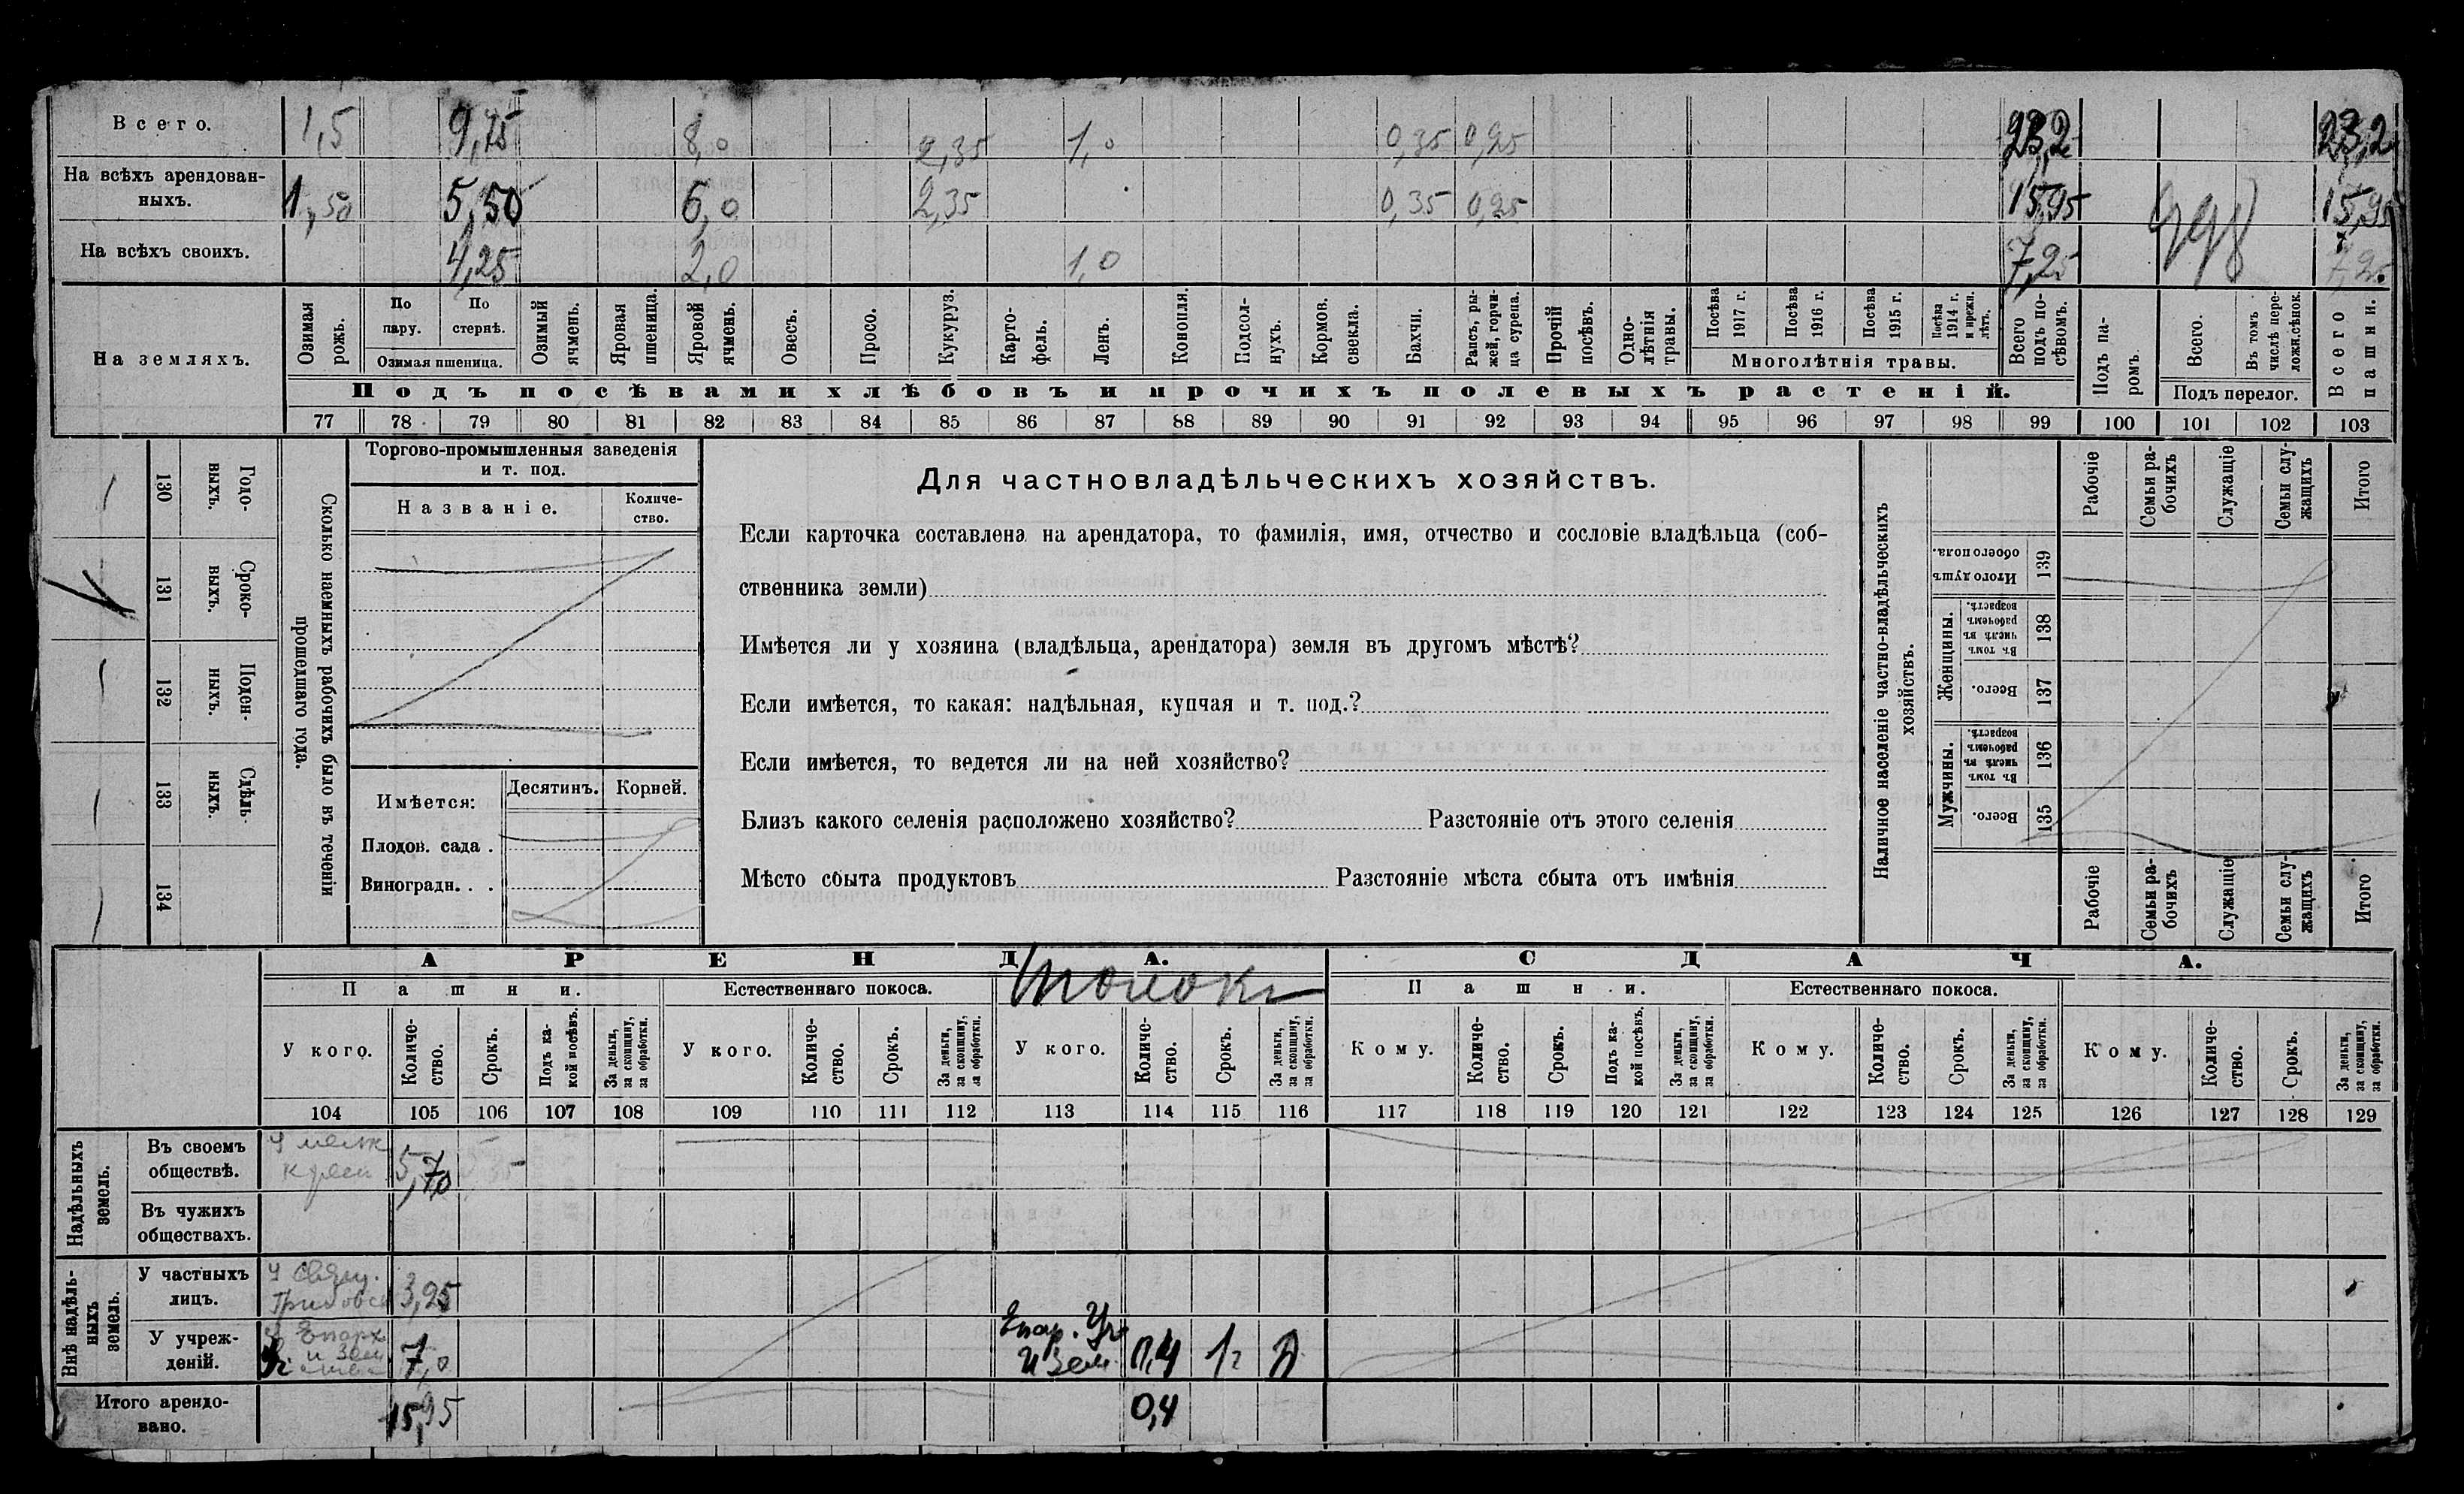 Всего. 1,5 9,75 8,0 2,35 1,0 0,35 0,25 23,2 23,2
На всѣхъ арендован-
ныхъ. 1,50 5,50 6,0 2,35 0,35 0,25 15,95 15,95
На всѣхъ своихъ. 4,25 2,0 1,0 7,25 7,25
На земляхъ.
Озимая рожь.
По пару.
По стернѣ.
Озимая пшеница.
Озимый ячмень.
Яровая пшеница.
Яровой ячмень.
Овесъ.
Просо.
Кукуруз.
Карто-
фель.
Ленъ.
Конопля.
Подсол-
нухъ.
Кормов. свекла.
Бахчи.
Рапсъ, ры-
жей, горчи-
ца сурепа.
Прочій посѣвъ.
Одно-
лѣтнія травы.
Посѣва 1917 г.
Посѣва 1916 г.
Посѣва 1915 г.
Посѣва 1914 г. и прежн. лѣтъ.
Многолѣтнія травы.
Всего подъ по-
сѣвомъ.
Подъ па-
ромъ.
Всего.
Въ томъ числѣ пере-
ложн. сѣнок.
Подъ перелог.
Всего пашни.
Подъ посѣвами хлѣбовъ и прочихъ полевыхъ растеній.
77 78 79 80 81 82 83 84 85 86 87 88 89 90 91 92 93 94 95 96 97 98 99 100 101 102 103
130 Годо-
выхъ.
131 Сроко-
выхъ.
132 Поден-
ныхъ.
133 Сдѣль-
ныхъ.
134
Сколько наемныхъ рабочихъ было въ теченіи
прошедшаго года.
Торгово-промышленныя заведенія
и т. под.
Названіе.
Количе-
ство.
Имѣется:
Десятинъ. Корней.
Плодов. сада .
Виноградн. . .
Для частновладѣльческихъ хозяйствъ.
Если карточка составлена на арендатора, то фамилія, имя, отчество и сословіе владѣльца (соб-
ственника земли)
Имѣется ли у хозяина (владѣльца, арендатора) земля въ другомъ мѣстѣ?
Если имѣется, то какая: надѣльная, купчая и т. под.?
Если имѣется, то ведется ли на ней хозяйство?
Близъ какого селенія расположено хозяйство? Разстояніе отъ этого селенія
Мѣсто сбыта продуктовъ Разстояніе мѣста сбыта отъ имѣнія
Наличное населеніе частно-владѣльческихъ
хозяйствъ.
Рабочіе
Семьи ра-
бочихъ
Служащіе
Семьи слу-
жащихъ
Итого
Итого душъ обоего пола. 139
Женщины.
Въ томъ числѣ въ рабочемъ возрастѣ. 138
Всего. 137
Мужчины.
Въ томъ числѣ въ рабочемъ возрастѣ. 136
Всего. 135
Рабочіе
Семьи ра-
бочихъ
Служащіе
Семьи слу-
жащихъ
Итого
АРЕНДА. СДАЧА.
Пашни. Естественнаго покоса. Толоки Пашни. Естественнаго покоса.
У кого.
Количе-
ство.
Срокъ.
Подъ ка-
кой посѣвъ.
За деньги,
за скопщину,
за обработки.
У кого.
Количе-
ство.
Срокъ.
За деньги,
за скопщину,
за обработки.
У кого.
Количе-
ство.
Срокъ.
За деньги,
за скопщину,
за обработки.
Кому.
Количе-
ство.
Срокъ.
Подъ ка-
кой посѣвъ.
За деньги,
за скопщину,
за обработки.
Кому.
Количе-
ство.
Срокъ.
За деньги,
за скопщину,
за обработки.
Кому.
Количе-
ство.
Срокъ.
За деньги,
за скопщину,
за обработки.
104 105 106 107 108 109 110 111 112 113 114 115 116 117 118 119 120 121 122 123 124 125 126 127 128 129
Надѣльныхъ
земель.
Въ своемъ
обществѣ. 5,70
Въ чужихъ
обществахъ.
Внѣ надѣль-
ныхъ
земель.
У частныхъ
лицъ. 3,25
У учреж-
деній. 7,0 Епар. Уч
и Зем. 0,4 1 г Д
Итого арендо-
вано. 15,95 0,4